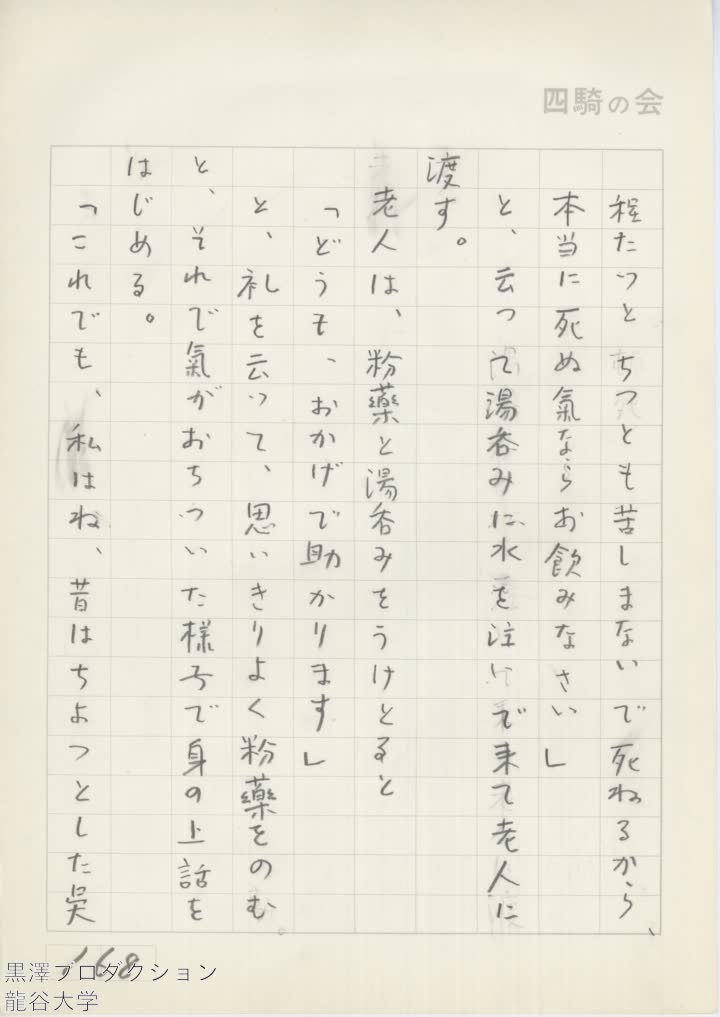 四騎の会
程たつとちつとも苦しまないで死ねるから、
本当に死ぬ氣ならお飲みなさい」
と、云つて湯呑みに水を注いで来て老人に
渡す。
老人は、粉藥と湯呑みをうけとると
「どうも、おかげで助かります」
と、礼を云って、思いきりよく粉藥をのむ。
と、それで氣がおちついた様子で身の上話を
はじめる。
「これでも、私はね、昔はちよつとした呉
168
黒澤プロダクション
龍谷大学